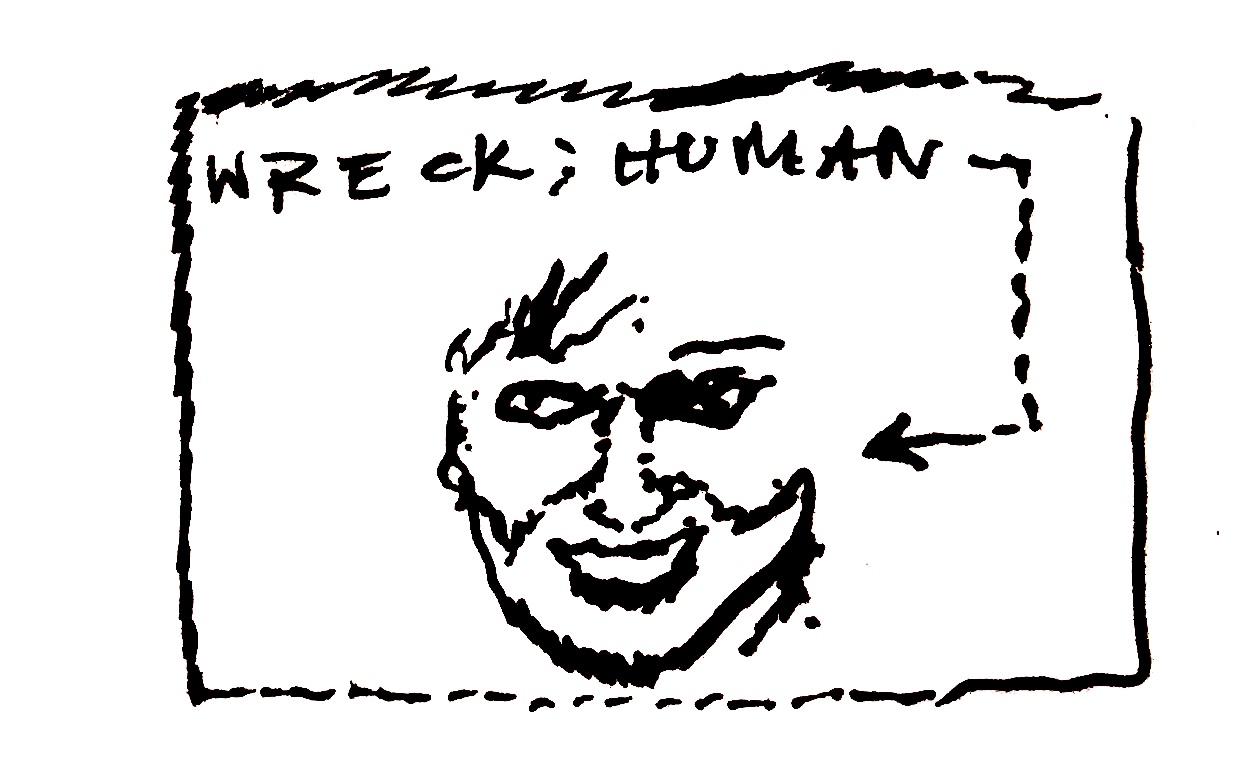 WRECK; HUMAN